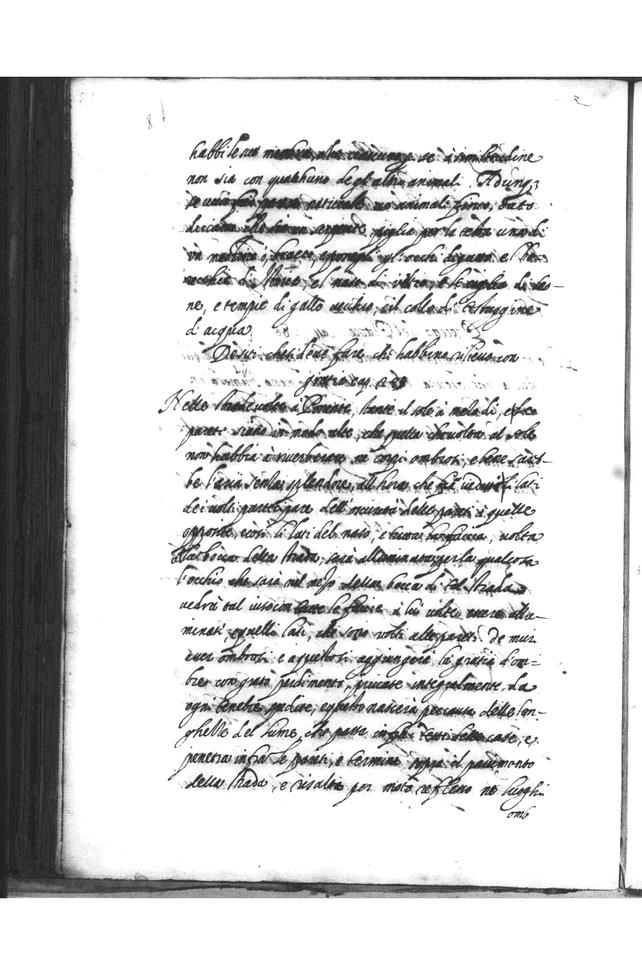 habbi le sue membra, che ciascuno per se à similitudine
non sia con qualchuno degl'altri animali. Adunq3
se vuoi far parere naturale uno animali finto, dato
diciamo che sia un serpente, piglia per la testa una di
un mastino, ò bracco, e poneg gl'occhi di gatto, e l'ho
recchie di Istrice, e'l naso di veltro, e le ciglia di leo-
ne, e tempie di gallo vecchio, e il collo di testuggine
d'acqua
De visi che si deve fare che habbino rilievo con
gratia cap.
Nelle strade volte a Ponente, stante il sole à mezo dì, e le
pareti siano in modo alte, che quella che è volta al sole
non habbia à riverberare ne corpi ombrosi, e bene sareb-
be l'aria senza splendore, all'hora che fia veduti li lati
dei volti participare dell'oscurità delle pareti à quelle
opposite, e così li lati del naso, e tutta la faccia, volta
alla bocca della strada, sarà alluminata, per la qual cosa
l'occhio che sarà nel mezo della bocca di tal strada
vedrà tal viso con tutte le faccie à lui volte essere allu-
minate, e quelli lati, che sono volti alle pareti de muri
esser ombrosi, e a questo si aggiungerà la gratia d'om-
bre con grato perdimento, private integralmente da
ogni termine spedito, e questo nascerà per causa della lon-
ghezza del lume, che passa infra i tetti delle case, e
penetra infra le pareti, e termina sopra il pavimento
della strada, e risalta per moto reflesso ne luoghi
omb